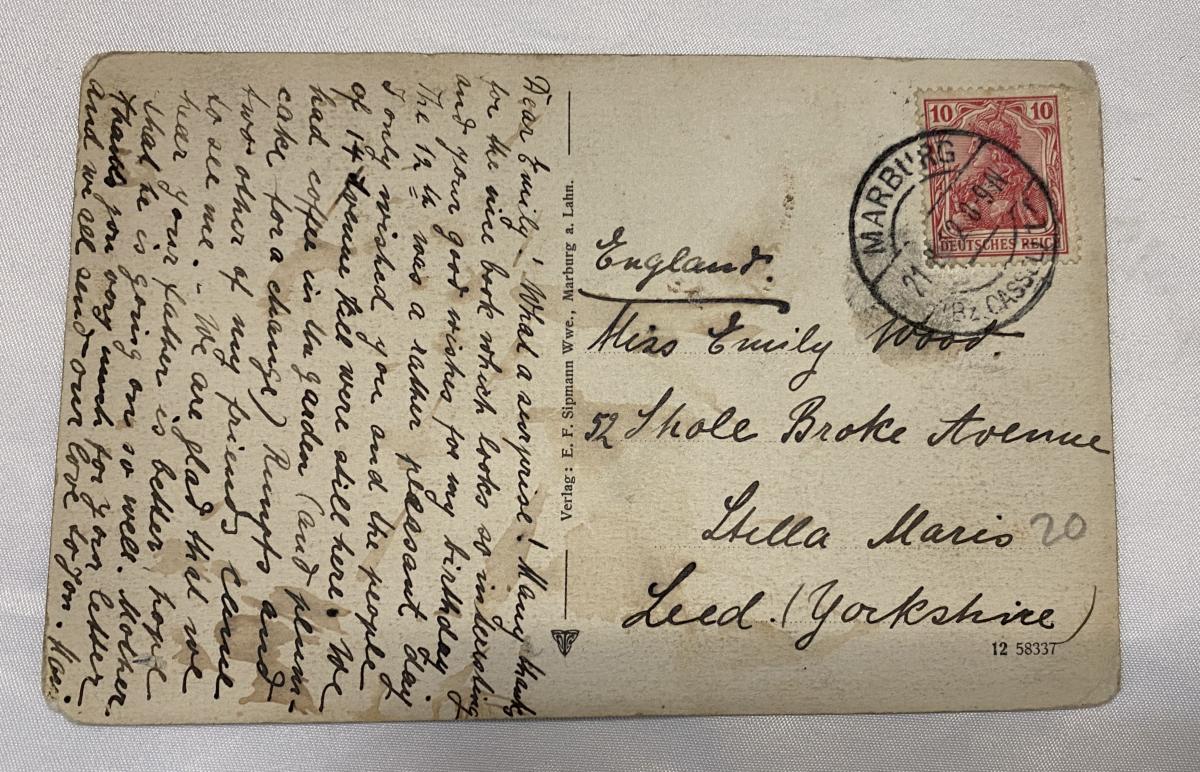 Dear Emily! What a surprise! Many thanks
for the nice book which looks so interesting
and your good wishes for my birthday
The 12th was a rather pleasant day
I only wished you and the people
of 14 were still here. We
had coffee in the garden (and plum-
cake for a change) Rumpfs and
two other of my friends came
to see me. - We are glad that we
hear your father is better, hope
that he is going on so well. Mother
thanks you very much for your letter
and we all send our love to you.
Verlag: E. F. Sipmann Wwe., Marburg a. Lahn.
10 10
DEUTSCHES REICH
MARBURG
21 12 8-9N
(Bz. CASSEL)
England.
Miss Emily Wood.
52 Shole Broke Avenue
Stella Maris 20
Leed. (Yorkshire)
12 58337